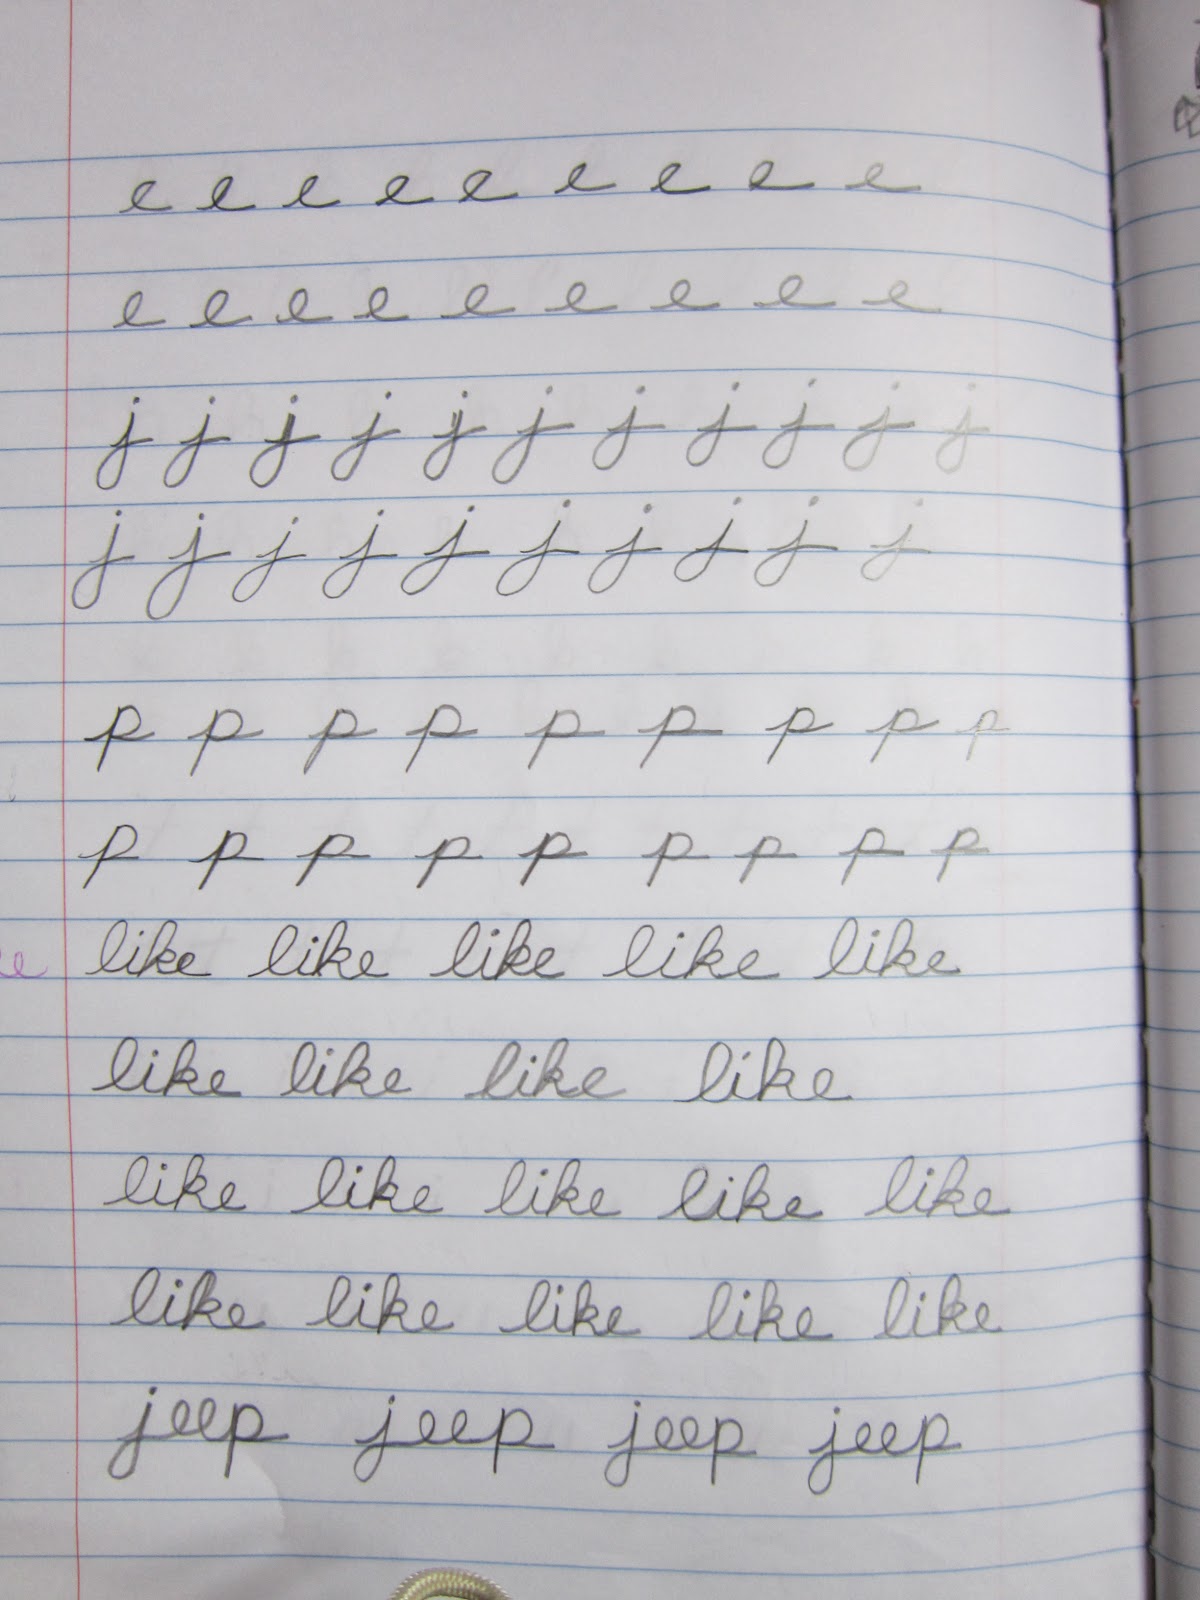 e e e e e e e e e
e e e e e e e e e
j j j j j j j j j j j
j j j j j j j j j j
p p p p p p p p p
p p p p p p p p p
like like like like like
like like like like
like like like like like
like like like like like
jeep jeep jeep jeep